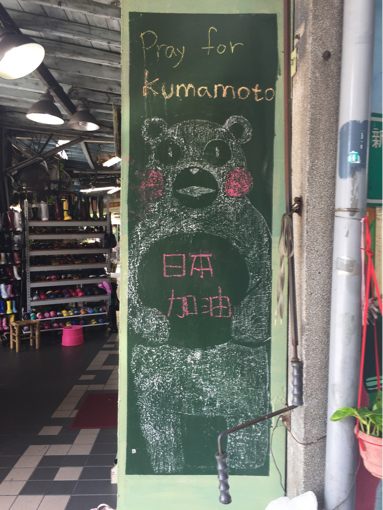 Pray for
Kumamoto
日本
加油